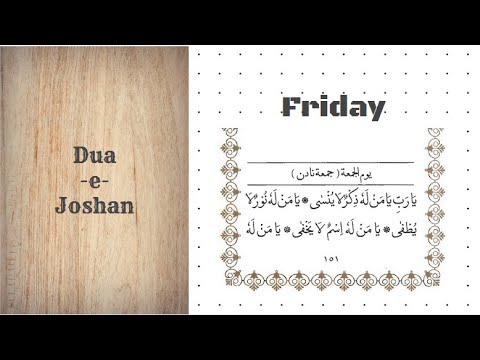 Dua
-e-
Joshan
Friday
يوم الجمعة ( جمعة نادن )
يَارَبِّ يَا مَنْ لَهٗ ذِكْرٌ لَا يُنْسٰى * يَا مَنْ لَهٗ نُوْرٌ لَا
يُطْفٰى * يَا مَنْ لَهٗ اِسْمٌ لَا يَخْفٰى * يَا مَنْ لَهٗ
١٥١